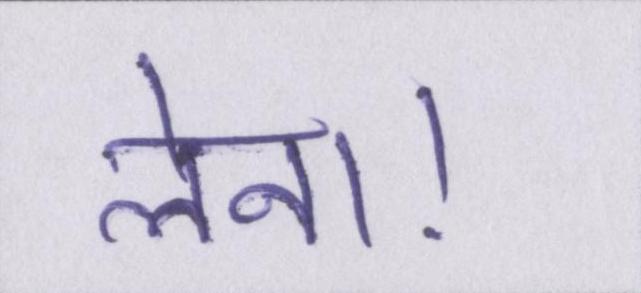 लेना!